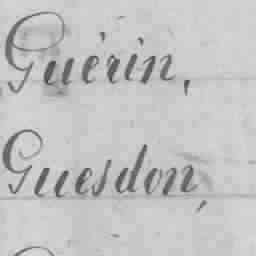 Guérin,
Guesdon,